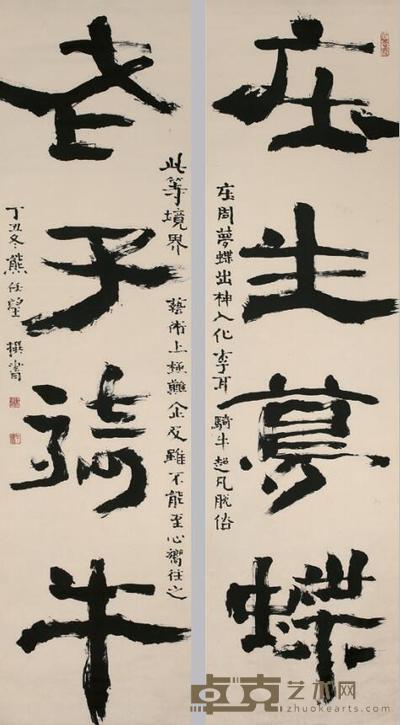 庄生夢蝶
庄周夢蝶出神入化李耳騎牛超凡脱俗
老子騎牛
此等境界
藝術上極難企及雖不能至心嚮往之
丁丑冬熊任望撰書
卓克艺术网
www.zhuokearts.com